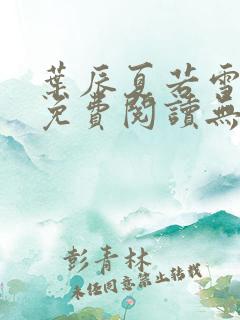 葉辰夏若雪
免費閱讀無
彭青林
未任同意禁止转载